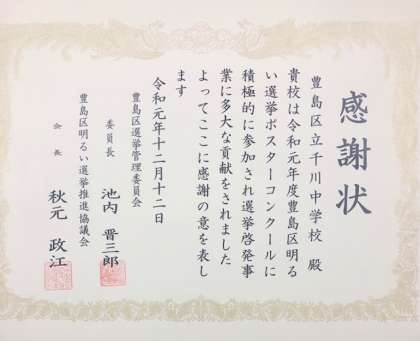 感謝状
豊島区立千川中学校 殿
貴校は令和元年度豊島区明る
い選挙ポスターコンクールに
積極的に参加され選挙啓発事
業に多大な貢献をされました
よってここに感謝の意を表し
ます
令和元年十二月十二日
豊島区選挙管理委員会
委員長 池内 晋三郎
豊島区明るい選挙推進協議会
会長 秋元 政江